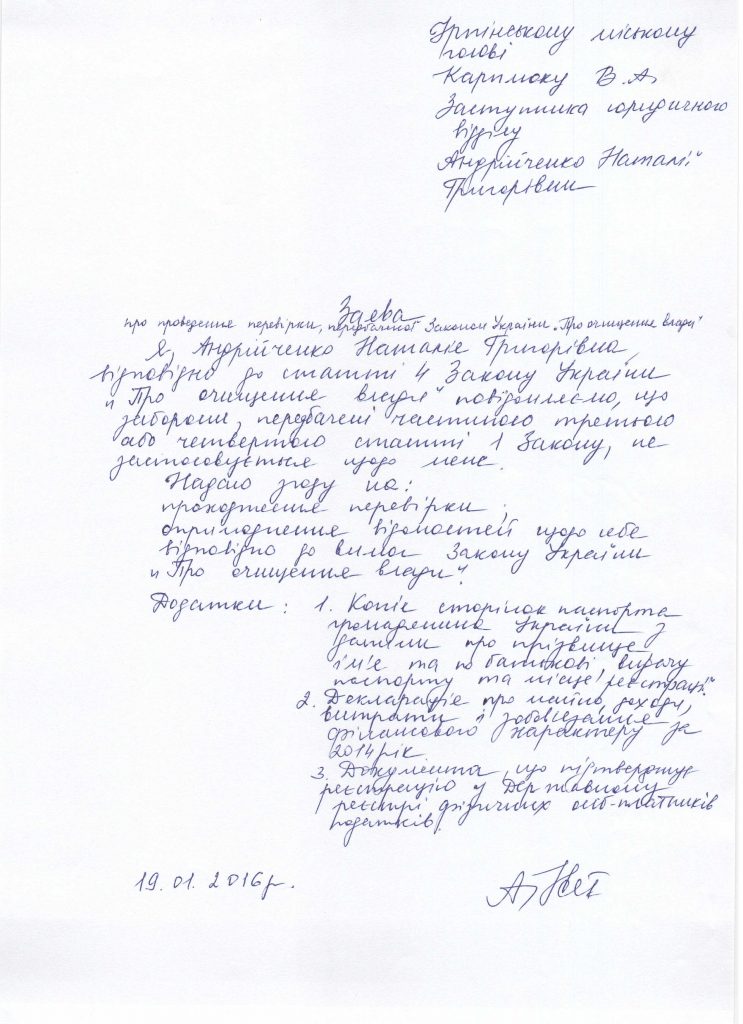 Ірпінському міському
голові
Карплюку В.А.
Заступника юридичного
відділу
Андрійченко Наталії
Григорівни
Заява
про проведення перевірки, передбаченої Законом України „Про очищення влади"
Я, Андрійченко Наталія Григорівна,
відповідно до статті 4 Закону України
„Про очищення влади" повідомляємо, що
заборони, передбачені частиною третьою
або четвертою статті 1 Закону, не
застосовується щодо мене.
Надаю згоду на:
проходження перевірки;
оприлюднення відомостей щодо себе
відповідно до вимог Закону України
„Про очищення влади".
Додатки: 1. Копія сторінок паспорта
громадянина України з
даними про прізвище
ім'я та по батькові, видачу
паспорту та місце реєстрації.
2. Декларація про майно, доходи,
витрати і зобов'язання
фінансового характеру за
2014 рік
3. Документа, що підтверджує
реєстрацію у Державному
реєстрі фізичних осіб-платників
податків.
19.01.2016р.